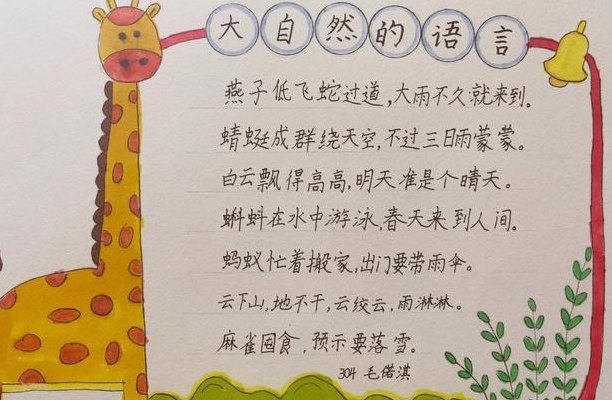 大自然的语言
燕子低飞蛇过道,大雨不久就来到。
蜻蜓成群绕天空,不过三日雨蒙蒙。
白云飘得高高,明天准是个晴天。
蝌蚪在水中游泳,春天来到人间。
蚂蚁忙着搬家,出门要带雨伞。
云下山,地不干,云绞云,雨淋淋。
麻雀囤食,预示要落雪。
304 毛偌淇